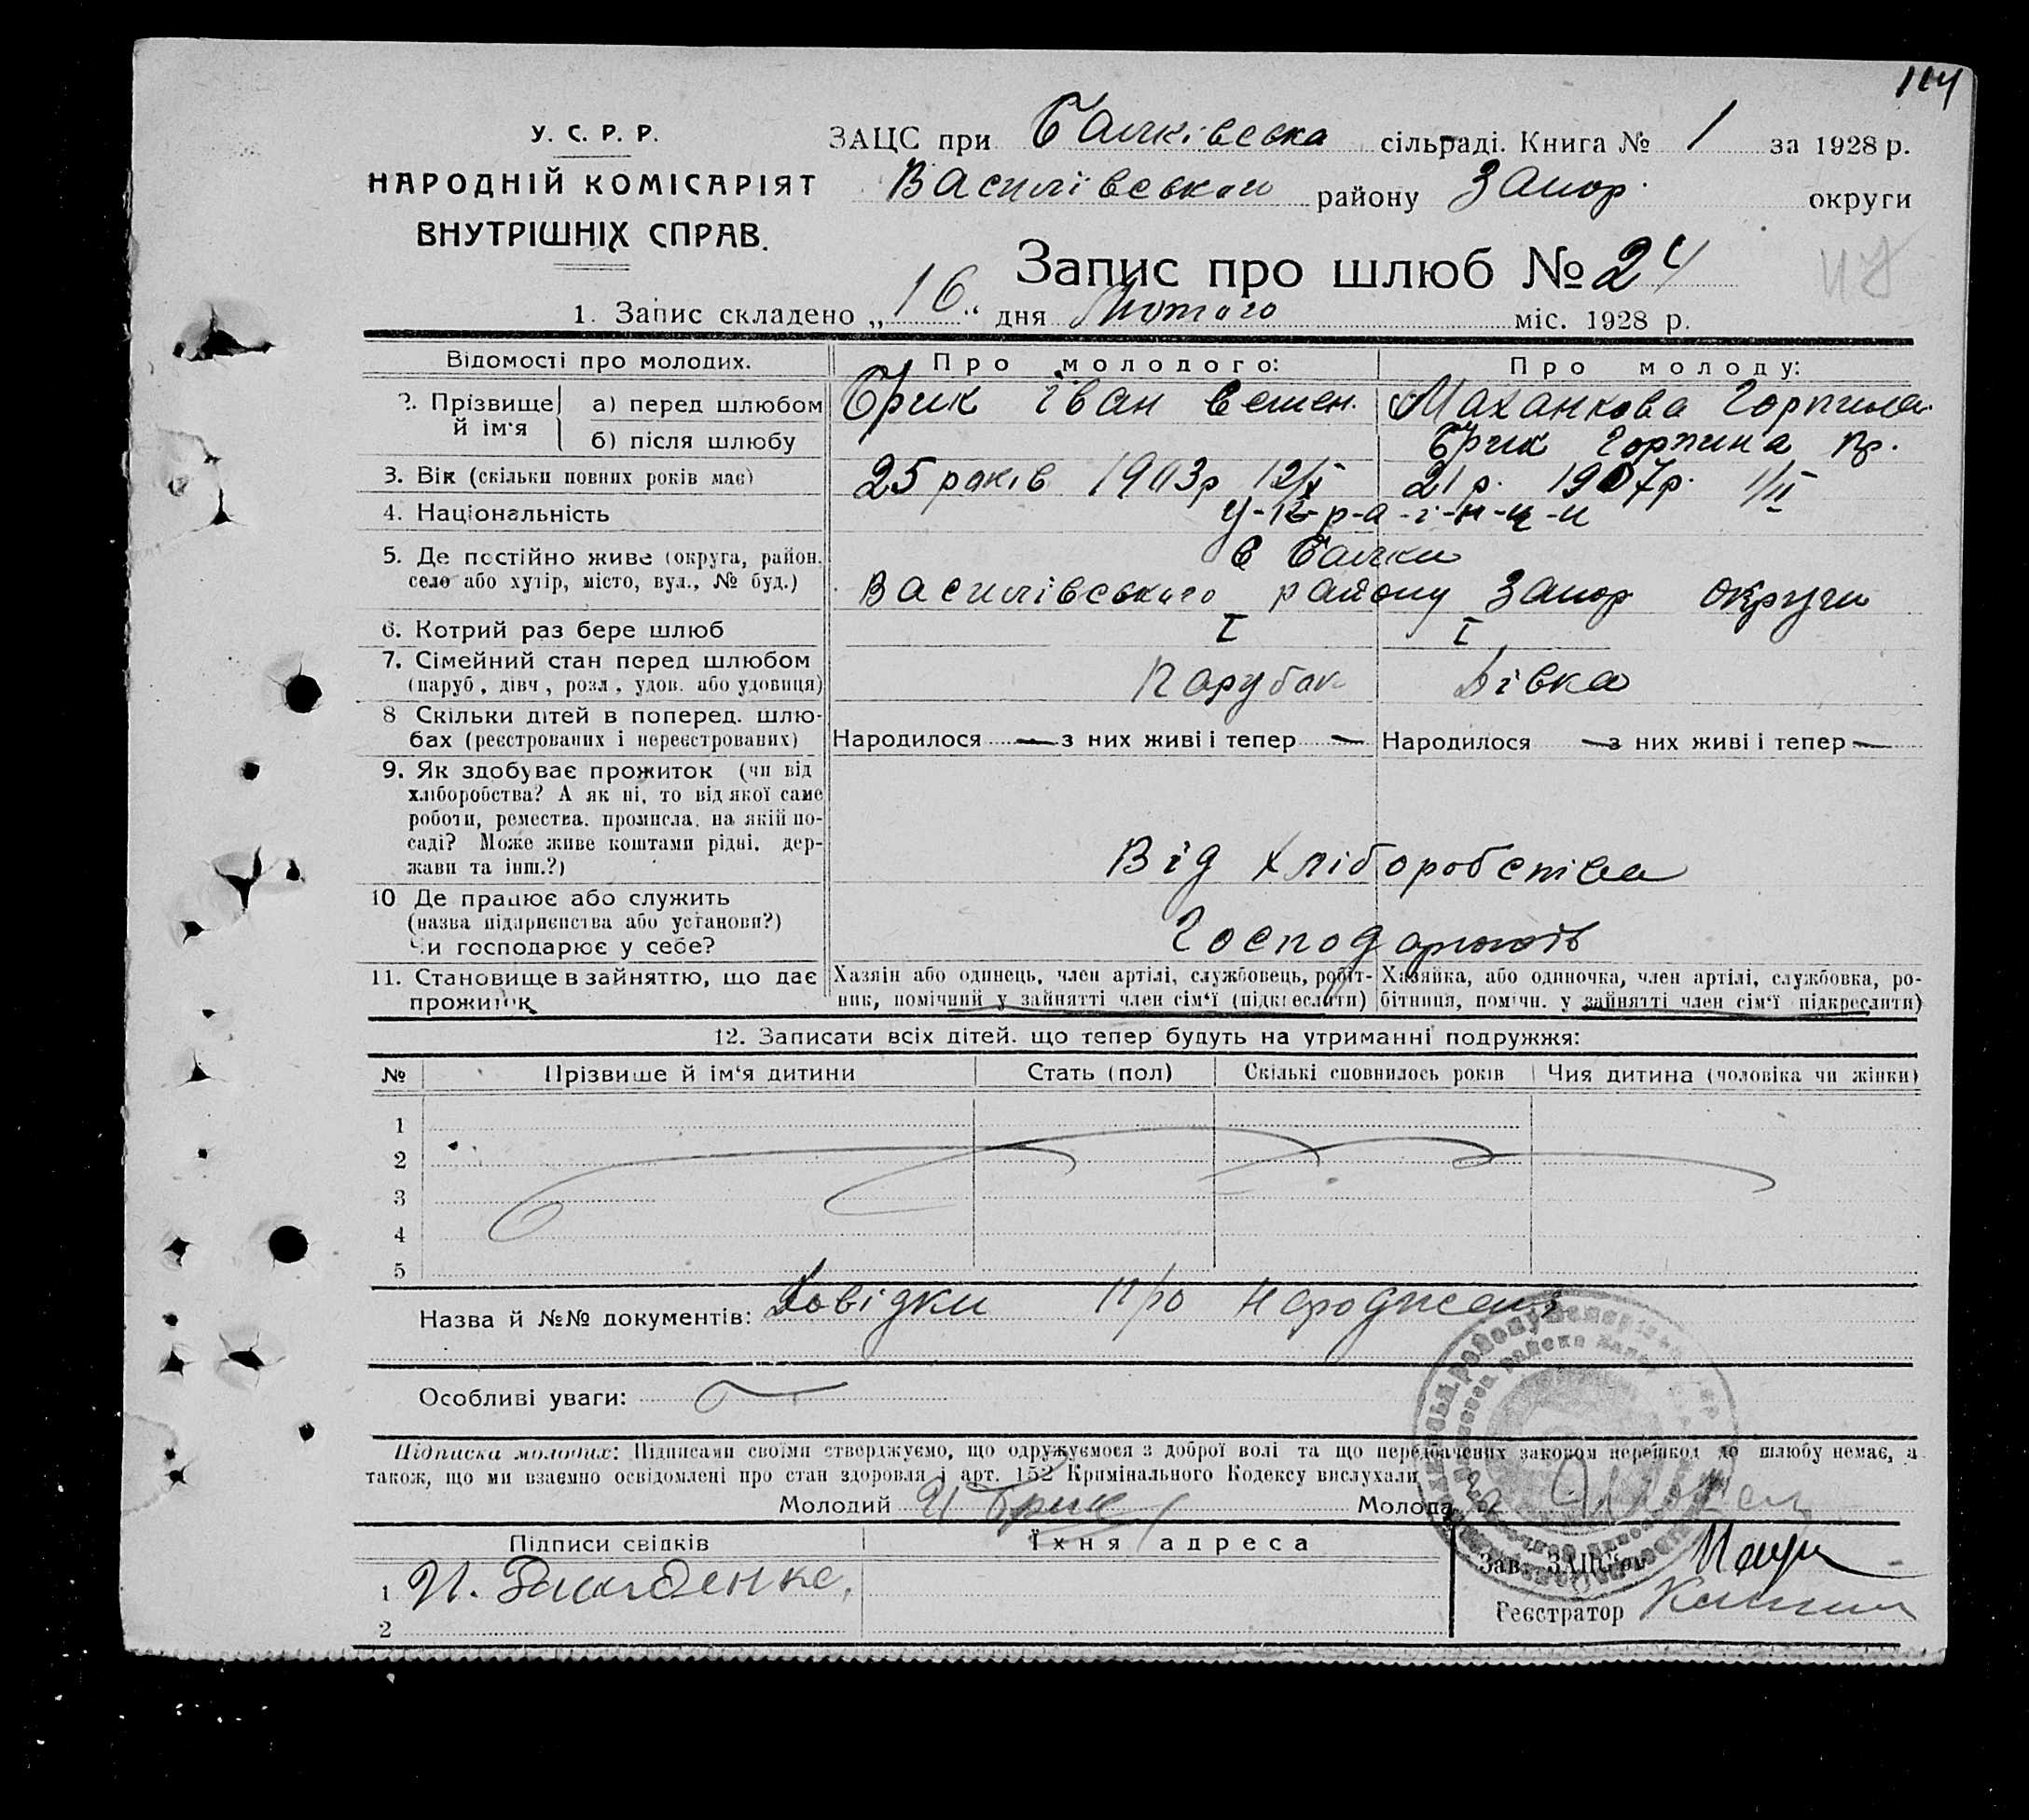 114
У. С. Р. Р.
НАРОДНІЙ КОМІСАРІЯТ
ВНУТРІШНІХ СПРАВ.
ЗАЦС при Балківська сільраді. Книга № 1 за 1928 р.
Василівський району Запор. округи
Запис про шлюб № 24
1. Запис складено „16“ дня Лютого міс. 1928 р.
Відомості про молодих. Про молодого: Про молоду:
2. Прізвище й ім‘я а) перед шлюбом Брик Іван Семен. Маханкова Горпина
б) після шлюбу Брик Горпина Пр.
3. Вік (скільки повних років має) 25 років 1903р 12/X 21 р. 1907р. 1/II
4. Національність У-к-р-а-ї-н-ц-и
5. Де постійно живе (округа, район, с Балки
село або хутір, місто, вул., № буд.) Василівського району Запор округи
6. Котрий раз бере шлюб I I
7. Сімейний стан перед шлюбом
(паруб., дівч., розл., удов. або удовиця) Парубок Дівка
8 Скільки дітей в поперед. шлю-
бах (реєстрованих і нереєстрованих) Народилося — з них живі і тепер — Народилося — з них живі і тепер —
9. Як здобуває прожиток (чи від
хліборобства? А як ні, то від якої саме
роботи, ремества, промисла, на якій по-
саді? Може живе коштами рідні, дер-
жави та інш.?) Від хліборобства
10 Де працює або служить
(назва підприємства або установи?)
Чи господарює у себе? Господарюють
11. Становище в зайняттю, що дає Хазяїн або одинець, член артілі, службовець, робіт- Хазяйка, або одиночка, член артілі, службовка, ро-
прожиток ник, помічний у зайнятті член сім‘ї (підкреслити) бітниця, помічн. у зайнятті член сім‘ї підкреслити)
12. Записати всіх дітей, що тепер будуть на утриманні подружжя:
№ Прізвище й ім‘я дитини Стать (пол) Скількі сповнилось років Чия дитина (чоловіка чи жінки)
1
2
3
4
5
Назва й №№ документів: Довідки про народження
Особливі уваги:
Підписка молодих: Підписами своїми стверджуємо, що одружуємося з доброї волі та що передбачених законом перешкод до шлюбу немає, а
також, що ми взаємно освідомлені про стан здоровля і арт. 152 Кримінального Кодексу вислухали
Молодий И Брик Молода
Підписи свідків Їхня адреса
Зав. ЗАЦС‘ом
1
Реєстратор
2